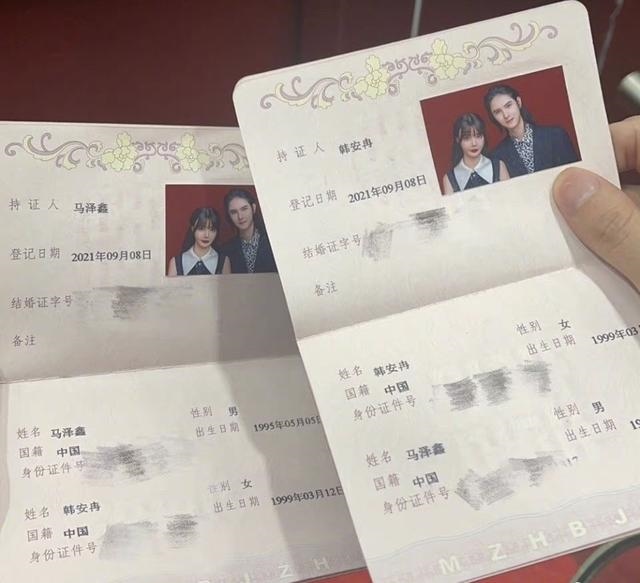 持证人 马泽鑫
登记日期 2021年09月08日
结婚证字号
备注
姓名 马泽鑫 性别 男
国籍 中国 出生日期 1995年05月05日
身份证件号
姓名 韩安冉 性别 女
国籍 中国 出生日期 1999年03月12日
身份证件号
持证人 韩安冉
登记日期 2021年09月08日
结婚证字号
备注
姓名 韩安冉 性别 女
国籍 中国 出生日期 1999年03
身份证件号
姓名 马泽鑫 性别 男
国籍 中国 出生日期 19
身份证件号
MZHBJ